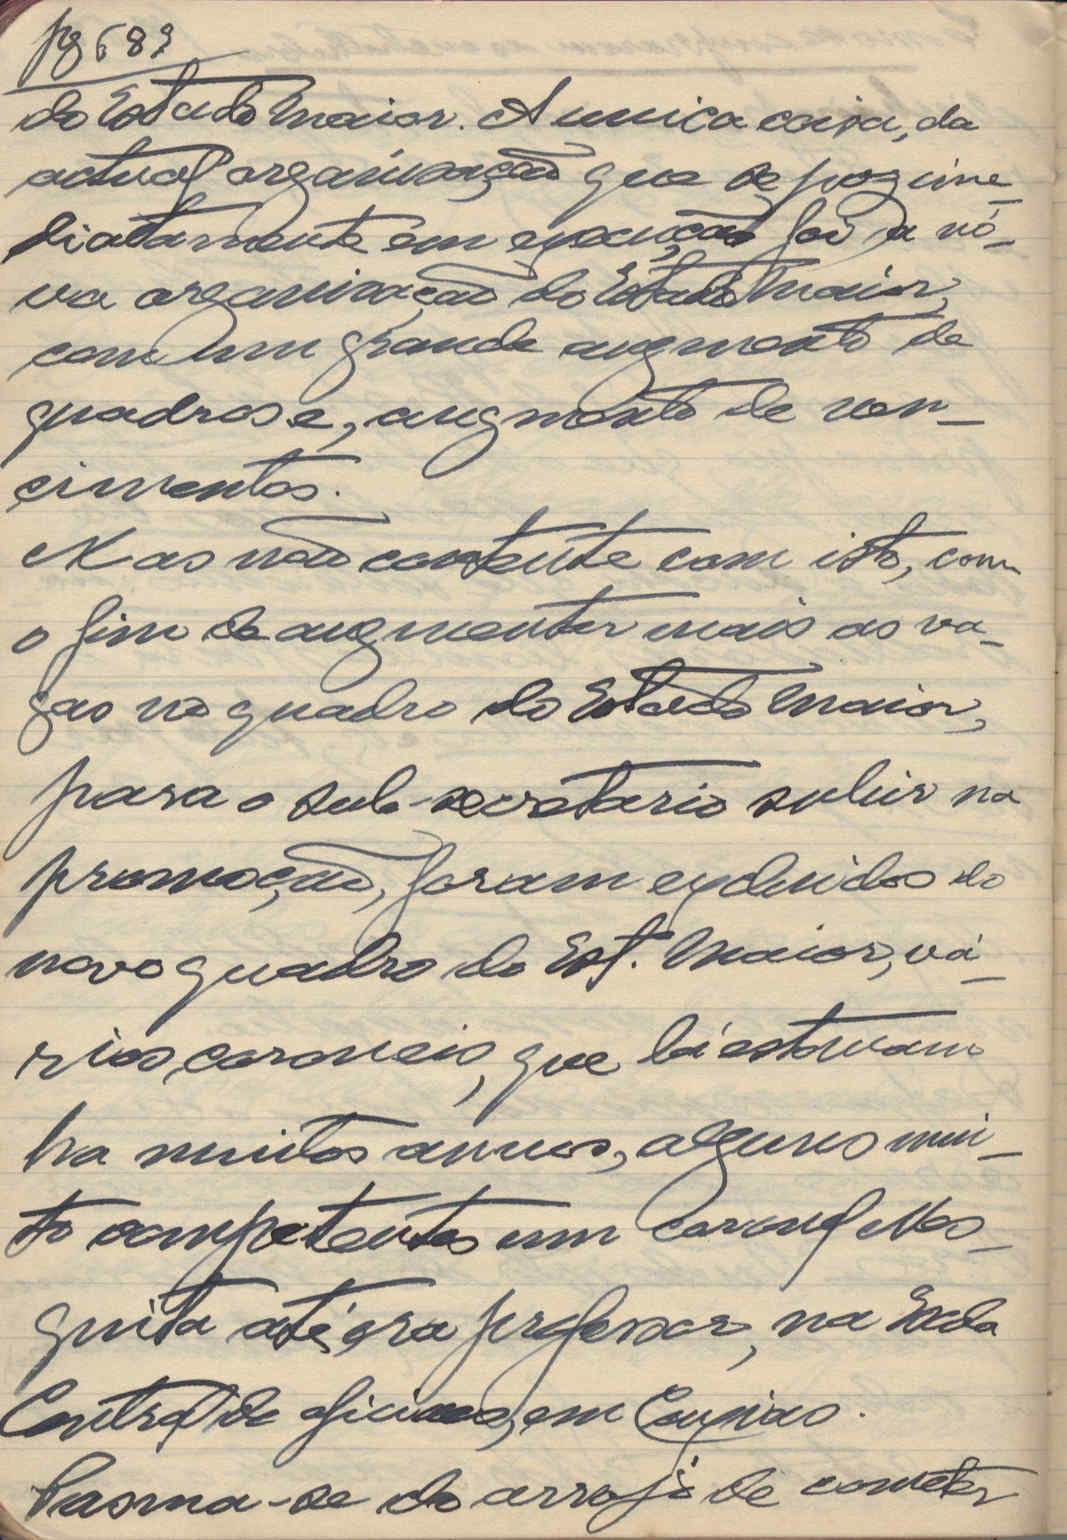 pg 683
do Estado Maior. A unica coisa, da
actual organisação que se poz ime_
diatamente em execução foi a nó_
va organisação do Estado Maior,
com um grande augmento de
quadros e, augmento de ven_
cimentos.
Mas não contente com isto, com
o fim de augmentar mais as va_
gas no quadro do Estado Maior,
para o sub-secretario subir na
promoção, foram excluidos do
novo quadro do Est. Maior, vá_
rios coroneis, que lá estavam
ha muitos annos, alguns mui_
to competentes um coronel Mes_
quita até era professor, na Escola
Central de oficiaes, em Caxias.
Pasma-se do arrojo de cometer